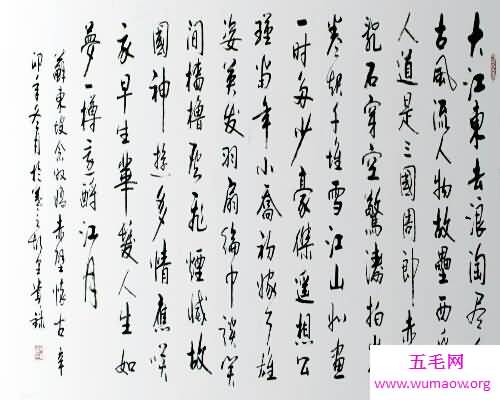 大江東去浪淘尽
古風流人物故壘西
人道是三國周郎赤
乱石穿空驚濤拍
卷起千堆雪江山如畫
一时多少豪傑遥想公
瑾當年小喬初嫁了雄
姿英发羽扇綸巾談笑
间檣櫓灰飛煙滅故
國神遊多情應笑
我早生華髮人生如
夢一樽還酹江月
蘇東坡念奴嬌赤壁懷古辛
卯年冬月於
五毛网
www.wumaow.org